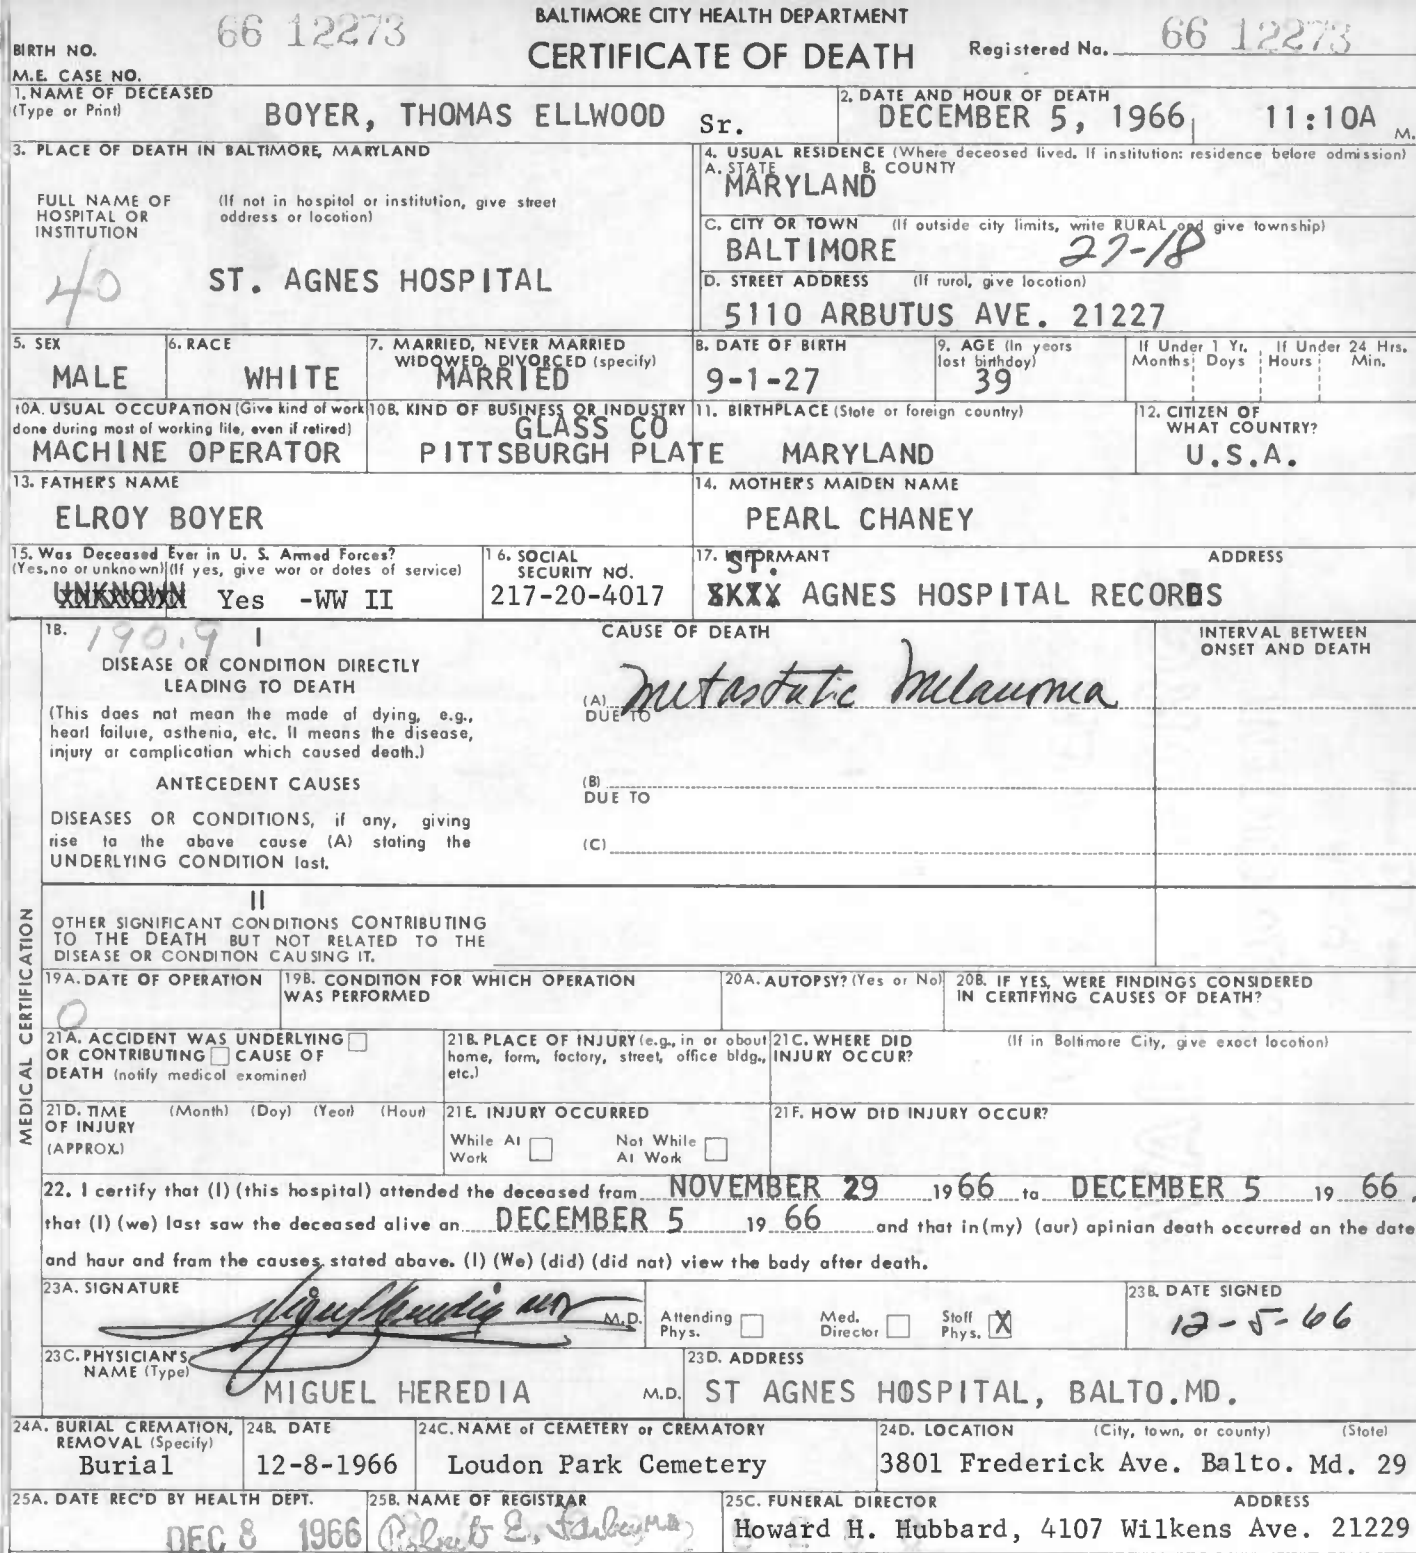 BALTIMORE CITY HEALTH DEPARTMENT
66 12273
66 12273
BIRTH NO.
CERTIFICATE OF DEATH
Registered No.
M.E. CASE NO.
1. NAME OF DECEASED
(Type or Print)
BOYER, THOMAS ELLWOOD Sr.
2. DATE AND HOUR OF DEATH
DECEMBER 5, 1966 11:10A M.
3. PLACE OF DEATH IN BALTIMORE, MARYLAND
FULL NAME OF HOSPITAL OR INSTITUTION
(If not in hospital or institution, give street address or location)
40
ST. AGNES HOSPITAL
4. USUAL RESIDENCE (Where deceased lived. If institution: residence before admission)
A. STATE B. COUNTY
MARYLAND
C. CITY OR TOWN (If outside city limits, write RURAL and give township)
BALTIMORE 27-18
D. STREET ADDRESS (If rural, give location)
5110 ARBUTUS AVE. 21227
5. SEX
MALE
6. RACE
WHITE
7. MARRIED, NEVER MARRIED
WIDOWED, DIVORCED (specify)
MARRIED
8. DATE OF BIRTH
9-1-27
9. AGE (In years last birthday)
39
If Under 1 Yr. If Under 24 Hrs.
Months Days Hours Min.
10A. USUAL OCCUPATION (Give kind of work done during most of working life, even if retired)
MACHINE OPERATOR
10B. KIND OF BUSINESS OR INDUSTRY
GLASS CO
PITTSBURGH PLATE
11. BIRTHPLACE (State or foreign country)
MARYLAND
12. CITIZEN OF WHAT COUNTRY?
U.S.A.
13. FATHER'S NAME
ELROY BOYER
14. MOTHER'S MAIDEN NAME
PEARL CHANEY
15. Was Deceased Ever in U. S. Armed Forces?
(Yes, no or unknown) (If yes, give war or dates of service)
UNKNOWN Yes -WW II
16. SOCIAL SECURITY NO.
217-20-4017
17. INFORMANT ADDRESS
ST.
AGNES HOSPITAL RECORDS
18. 190.9
I
CAUSE OF DEATH
INTERVAL BETWEEN ONSET AND DEATH
DISEASE OR CONDITION DIRECTLY
LEADING TO DEATH
(This does not mean the mode of dying, e.g.,
heart failure, asthenia, etc. It means the disease,
injury or complication which caused death.)
(A) Metastatic Melanoma
DUE TO
ANTECEDENT CAUSES
(B)
DUE TO
DISEASES OR CONDITIONS, if any, giving
rise to the above cause (A) stating the
UNDERLYING CONDITION last.
(C)
MEDICAL CERTIFICATION
II
OTHER SIGNIFICANT CONDITIONS CONTRIBUTING
TO THE DEATH BUT NOT RELATED TO THE
DISEASE OR CONDITION CAUSING IT.
19A. DATE OF OPERATION
0
19B. CONDITION FOR WHICH OPERATION WAS PERFORMED
20A. AUTOPSY? (Yes or No)
20B. IF YES, WERE FINDINGS CONSIDERED IN CERTIFYING CAUSES OF DEATH?
21A. ACCIDENT WAS UNDERLYING
OR CONTRIBUTING CAUSE OF
DEATH (notify medical examiner)
21B. PLACE OF INJURY (e.g., in or about home, farm, factory, street, office bldg., etc.)
21C. WHERE DID INJURY OCCUR?
(If in Baltimore City, give exact location)
21D. TIME OF INJURY (APPROX.)
(Month) (Day) (Year) (Hour)
21E. INJURY OCCURRED
While At Work Not While At Work
21F. HOW DID INJURY OCCUR?
22. I certify that (I) (this hospital) attended the deceased from NOVEMBER 29 19 66 to DECEMBER 5 19 66,
that (I) (we) last saw the deceased alive on DECEMBER 5 19 66 and that in (my) (our) opinion death occurred on the date
and hour and from the causes stated above. (I) (We) (did) (did not) view the body after death.
23A. SIGNATURE
Miguel Heredia MD M.D.
Attending Phys. Med. Director Staff Phys. X
23B. DATE SIGNED
12-5-66
23C. PHYSICIAN'S NAME (Type)
MIGUEL HEREDIA M.D.
23D. ADDRESS
ST AGNES HOSPITAL, BALTO.MD.
24A. BURIAL CREMATION, REMOVAL (Specify)
Burial
24B. DATE
12-8-1966
24C. NAME of CEMETERY or CREMATORY
Loudon Park Cemetery
24D. LOCATION (City, town, or county) (State)
3801 Frederick Ave. Balto. Md. 29
25A. DATE REC'D BY HEALTH DEPT.
DEC 8 1966
25B. NAME OF REGISTRAR
Robert E. Farber, MD
25C. FUNERAL DIRECTOR ADDRESS
Howard H. Hubbard, 4107 Wilkens Ave. 21229